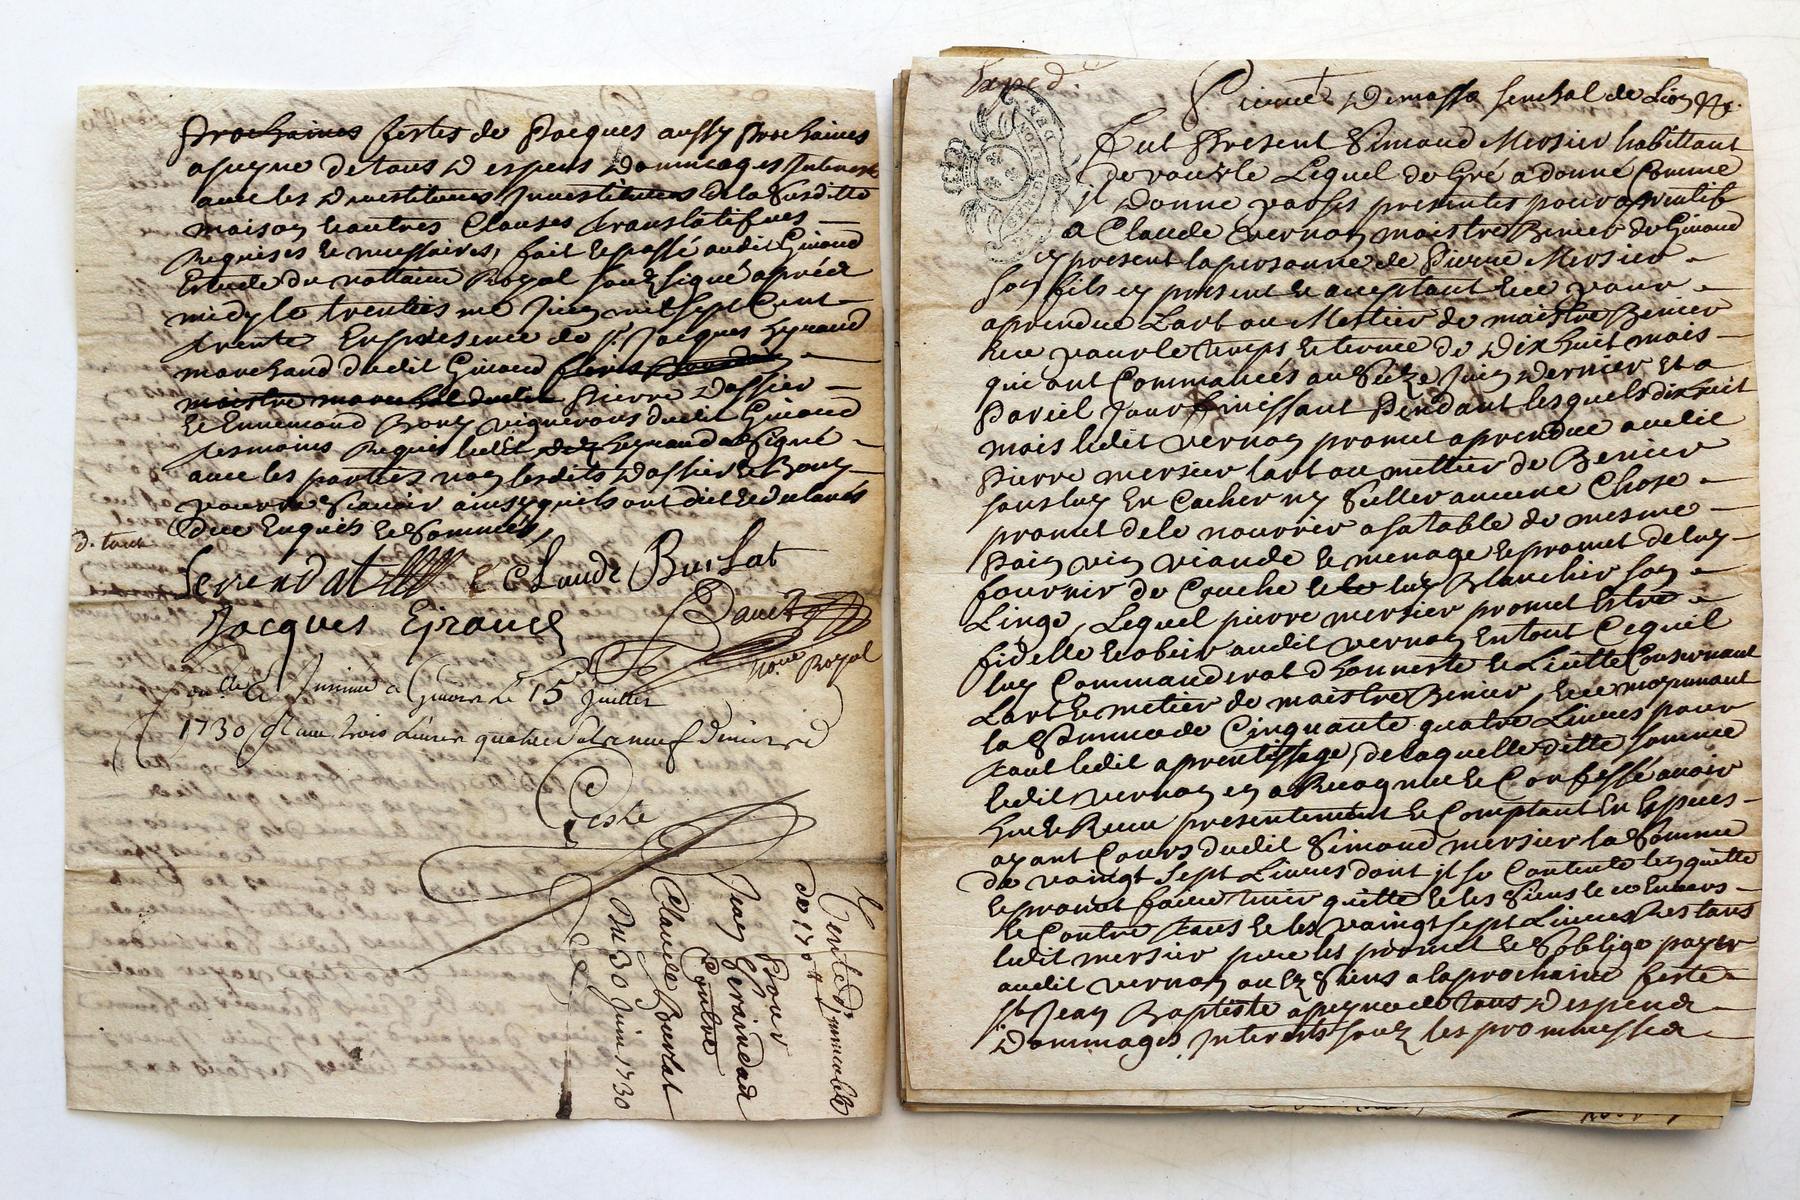 Prochaines festes de Jacques aussy prochaines
apeyne de tous despens dommages Interest
avec les devestitures Investitures de la susditte
maison & autres Clauses translatifves
Requises & nessaires, fait & passé audit Givord
Estude du nottaire Royal souzsigné aprèz
midy le trentiesme Juin mil sept Cent
trente En presence de sr. Jacques Eyraud
marchand dudit Givord
maistre mareschal dudit Pierre Dassier
& Ennemond Bony vignerons dudit Givord
tesmoins Requis ledit Seyvendat signé
avec les parties non lesdits Dassier & Bony
pour ne sçavoir ainsy quils ont dit & declarés
due Enquis & Sommés,
d. tout
Serendat Claude Burlat
Jacques Ejraud
nore. Royal
Insinué a Givors le 15e Juillet
1730 trois Livres quatre sols neuf deniers
Coste
Vente d'immeuble
de 170tt
Pour
Jean
Contre
Claude Bourlat
Du 30 Juin 1730
Exped.
de Lion &c.
Fut Present Simond Mersier habittant
Lequel de Gré a donné Comme
Jl Donne par ses presentes pour aprentif
a Claude Vernay maistre Benier de Givord
cy present la personne de Pierre Mersier
son fils cy present & aceptant & ce pour
aprendre Lart ou Mestier de maistre Benier
& ce pour le temps & terme de Dixhuit mois
qui ont Commancés au Seize Juin dernier & a
Pareil Jour finissant Pendant lesquels dixhuit
mois ledit Vernay promet aprendre audit
Pierre mersier lart ou mettier de Benier
sans luy En Cacher ny Seller aucune Chose
promet de le nourrir a sa table de mesme
Pain vin viande & menage & promet de luy
fournir de Couche & luy Blanchir son
Linge, Lequel pierre mersier promet Estre
fidelle & obeir audit vernay En tout Cequil
luy Commanderat d'honneste & Licitte Consernant
Lart & metier de maistre Benier, & ce moyennant
la Somme de Cinquante quatre Livres pour
tout ledit aprentissage, de laquelle ditte somme
ledit vernay en a Recognu & Confessé avoir
heu & Receu presentement & Comptant En Especes
ayant Cours dudit Simond mersier la Somme
de vaingt Sept Livres dont jl se Contente len quitte
& promet faire tenir quitte & les Siens & ce Envers
& Contre tous & les vaingt sept Livres Restans
ledit mersier pere les promet & Soblige payer
audit vernay ou Es Siens a la prochaine feste
st Jean Baptiste a peyne de tous Despens
Dommages Interets souz les prommesses